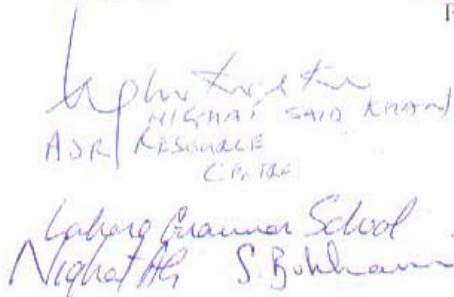 NIGHAT SAID KHAN
ASR RESOURCE
CENTRE
Lahore Grammar School
Nighat Ali S. Bokhari